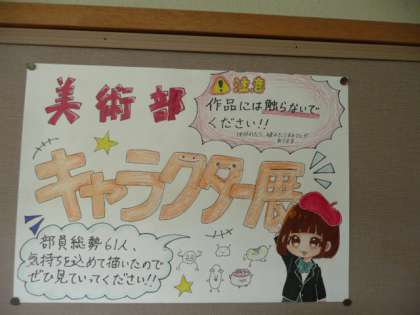 美術部
注意
作品には触らないで
ください!!
キャラクター展
部員総勢61人、
気持ちを込めて描いたので
ぜひ見ていってください!!